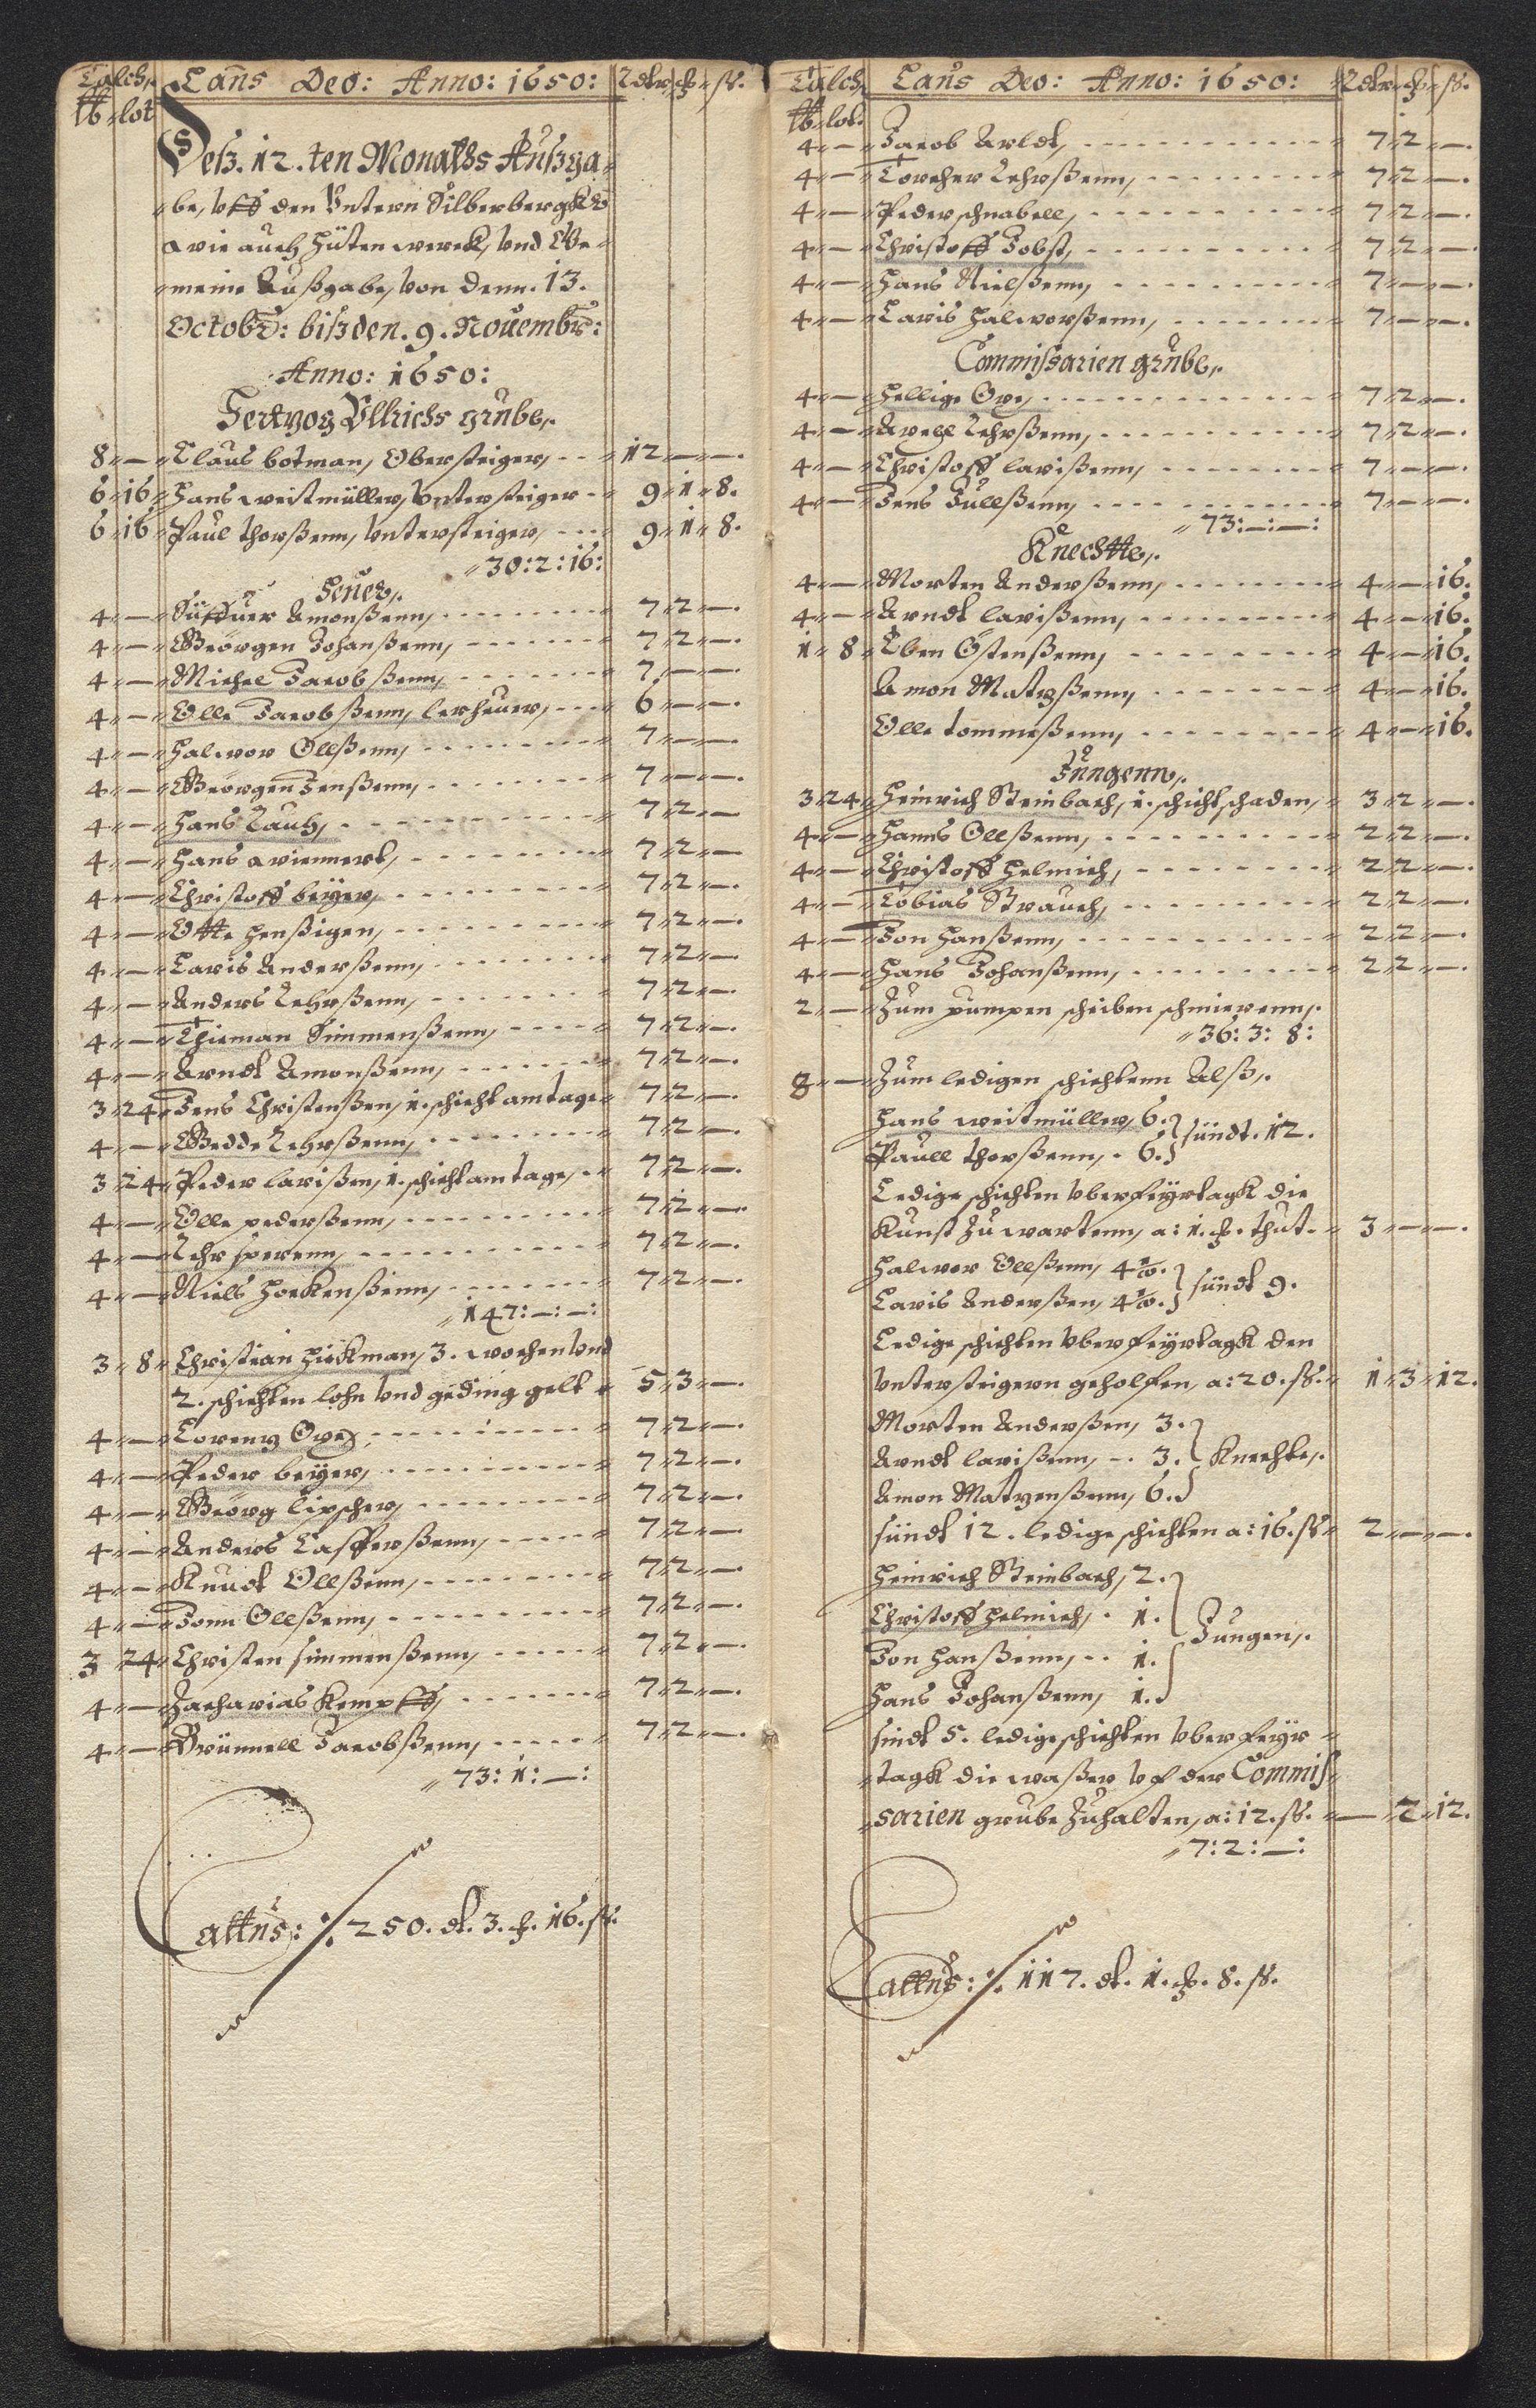 Talch, Laus Deo: Anno: 1650: Rdtr, ß.
lb lot
Deß. 12.ten Monaths Außga-
be, vff den Vntern Silberbergk
wie auch Hüten werck, vnd Ge-
meine Außgabe, von denn. 13.
Octobr: biß den. 9. Nouembr:
Anno: 1650:
Hertzog Vlrichs grube,
8 — Claus botman, Obersteiger, 12 — —
6 16 Hans weitmüller, Vntersteiger 9 1 8.
6 16 Paul thorßenn, Vntersteiger, 9 1 8.
30: 2: 16:
Heuer,
4 — Amonßenn, 7 2 —.
4 — Geörgen Johanßenn, 7 2 —.
4 — Michel Jacobßenn, 7 — —
4 — Olle Jacobßenn, lerheuer, 6 — —
4 — Halwor Ollßenn, 7 — —
4 — Geörgen Jenßenn, 7 — —.
4 — Hans Lauh, 7 2 —
4 — Hans 7 2 —
4 — Christoff beÿer, 7 2 —.
4 — Otte Henßigen, 7 2 —.
4 — Laris Anderßenn, 7 2 —.
4 — Anders Lehrßenn, 7 2 —.
4 — Thieman Simmenßenn, 7 2 —.
4 — Arndt Amonßenn, 7 2 —.
3 24 Jens Christenßen, 1. schicht am tage 7 2 —.
4 — Gedde Lehrßenn, 7 2 —.
3 24 Peder larißen, 1. schicht am tage, 7 2 —.
4 — Olle pederßenn, 7 2 —.
4 — Lehr sperenn, 7 2 —.
4 — Niels Hockenßenn, 7 2 —.
147: —: —:
3 8 Christian Hickman, 3. wochen vnd
2. schichten lohn vnd geding gelt 5 3 —.
4 — Lorentz Oxe, 7 2 —.
4 — Peder beÿer, 7 2 —.
4 — Geörg lipscher, 7 2 —.
4 — Anders Casperßenn, 7 2 —.
4 — Knudt Ollßenn, 7 2 —.
4 — Jonn Ollßenn, 7 2 —.
3 24 Christen simmenßenn, 7 2 —.
4 — Zacharias Kempff, 7 2 —.
4 — Brünnell Jacobßenn, 7 2 —.
73: 1: —:
Lattus: 250. dt. 3. 16. ß.
Talch, Laus Deo: Anno: 1650: Rdtr ß.
lb lot.
4 — Jacob Arldt, 7 2 —.
4 — Torcher Lehrßenn, 7 2 —.
4 — Peder schnabell, 7 2 —.
4 — Christoff Jobst, 7 2 —.
4 — Hans Nielßenn, 7 — —.
4 — Laris Halworßenn, 7 — —.
Commissarien grube,
4 — Hellige Oxe, 7 2 —.
4 — Arell Lehrßenn, 7 2 —.
4 — Christoff larißenn, 7 — —.
4 — Jens Jullßenn, 7 — —.
73: —: —:
Knechtte,
4 — Morten Anderßenn, 4 — 16.
4 — Arndt larißenn, 4 — 16.
1 8 Eben Östenßenn, 4 — 16.
Amon Matzßenn, 4 — 16.
Olle tommeßenn, 4 — 16.
Jungenn,
3 24 Heinrich Steinbach, 1. schicht schaden, 3 2 —.
4 — Hanns Ollßenn, 2 2 —.
4 — Christoff Helmich, 2 2 —.
4 — Tobias Strauch, 2 2 —.
4 — Jon Hanßenn, 2 2 —.
4 — Hans Johanßenn, 2 2 —.
2 — Zum pumpen scheiben schmierenn,
36: 3: 8:
8 — Zum ledigen schichtenn Alß,
Hans weitmüller, 6. } sündt. 12.
Paull thorßenn, 6. }
Ledige schichten vber feÿrtagk die
Kunst zu wartenn, a: 1. thut. 3 — —.
Halwor Ollßenn, 4½. } sündt 9.
Laris Anderßen, 4½. }
Ledige schichten vber feÿrtagk den
Vntersteigern geholfen, a: 20. ß. 1 3 12.
Morten Anderßen, 3.
Arndt larißenn, 3. } Knechte,
Amon Matzenßenn, 6.
sündt 12. ledige schichten a: 16. ß 2 — —.
Heinrich Steinbach, 2.
Christoff Helmich, 1.
Jon Hanßenn, 1. } Jungen,
Hans Johanßenn, 1.
sindt 5. ledige schichten vber feÿr-
tagk die waßer vf der Commis-
sarien grube zuhalten, a: 12. ß. — 2 12.
7: 2: —:
Lattus: 117. dt. 1. 8. ß.